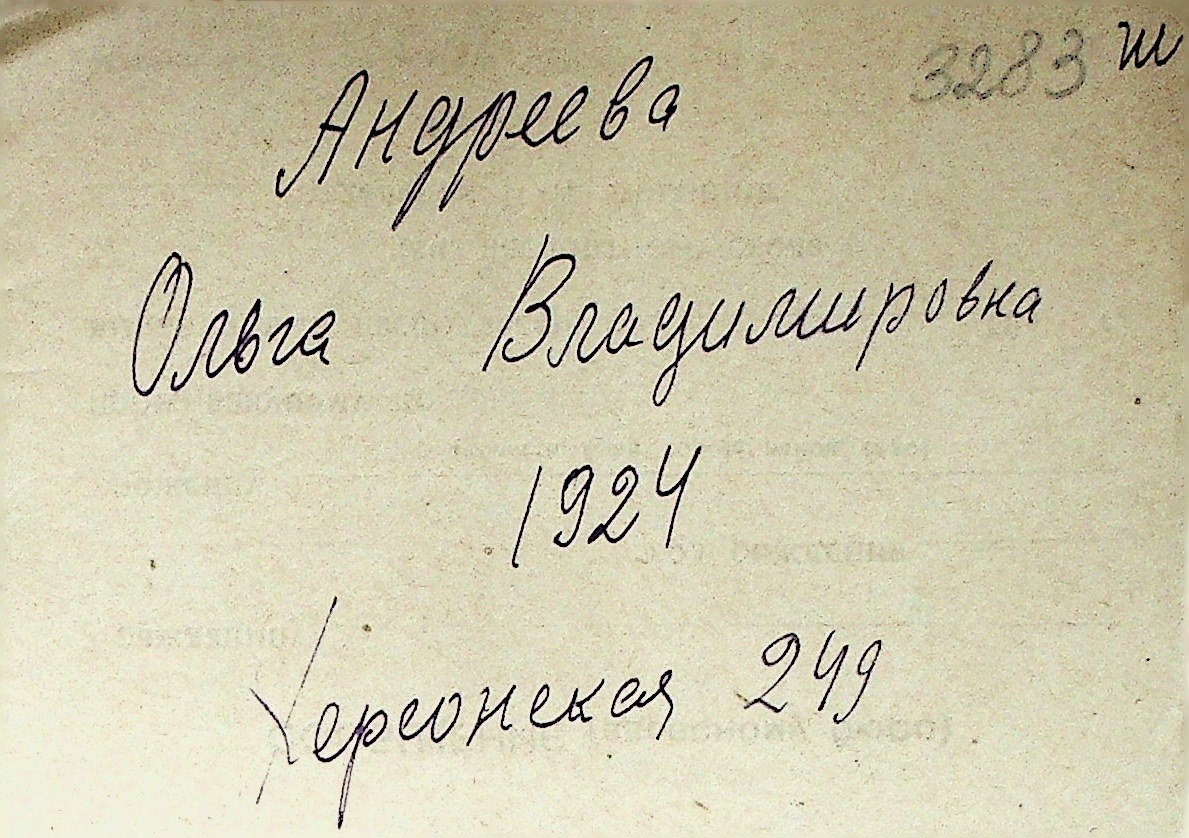 3283 ш
Андреева
Ольга Владимировна
1924
Херсонская 249